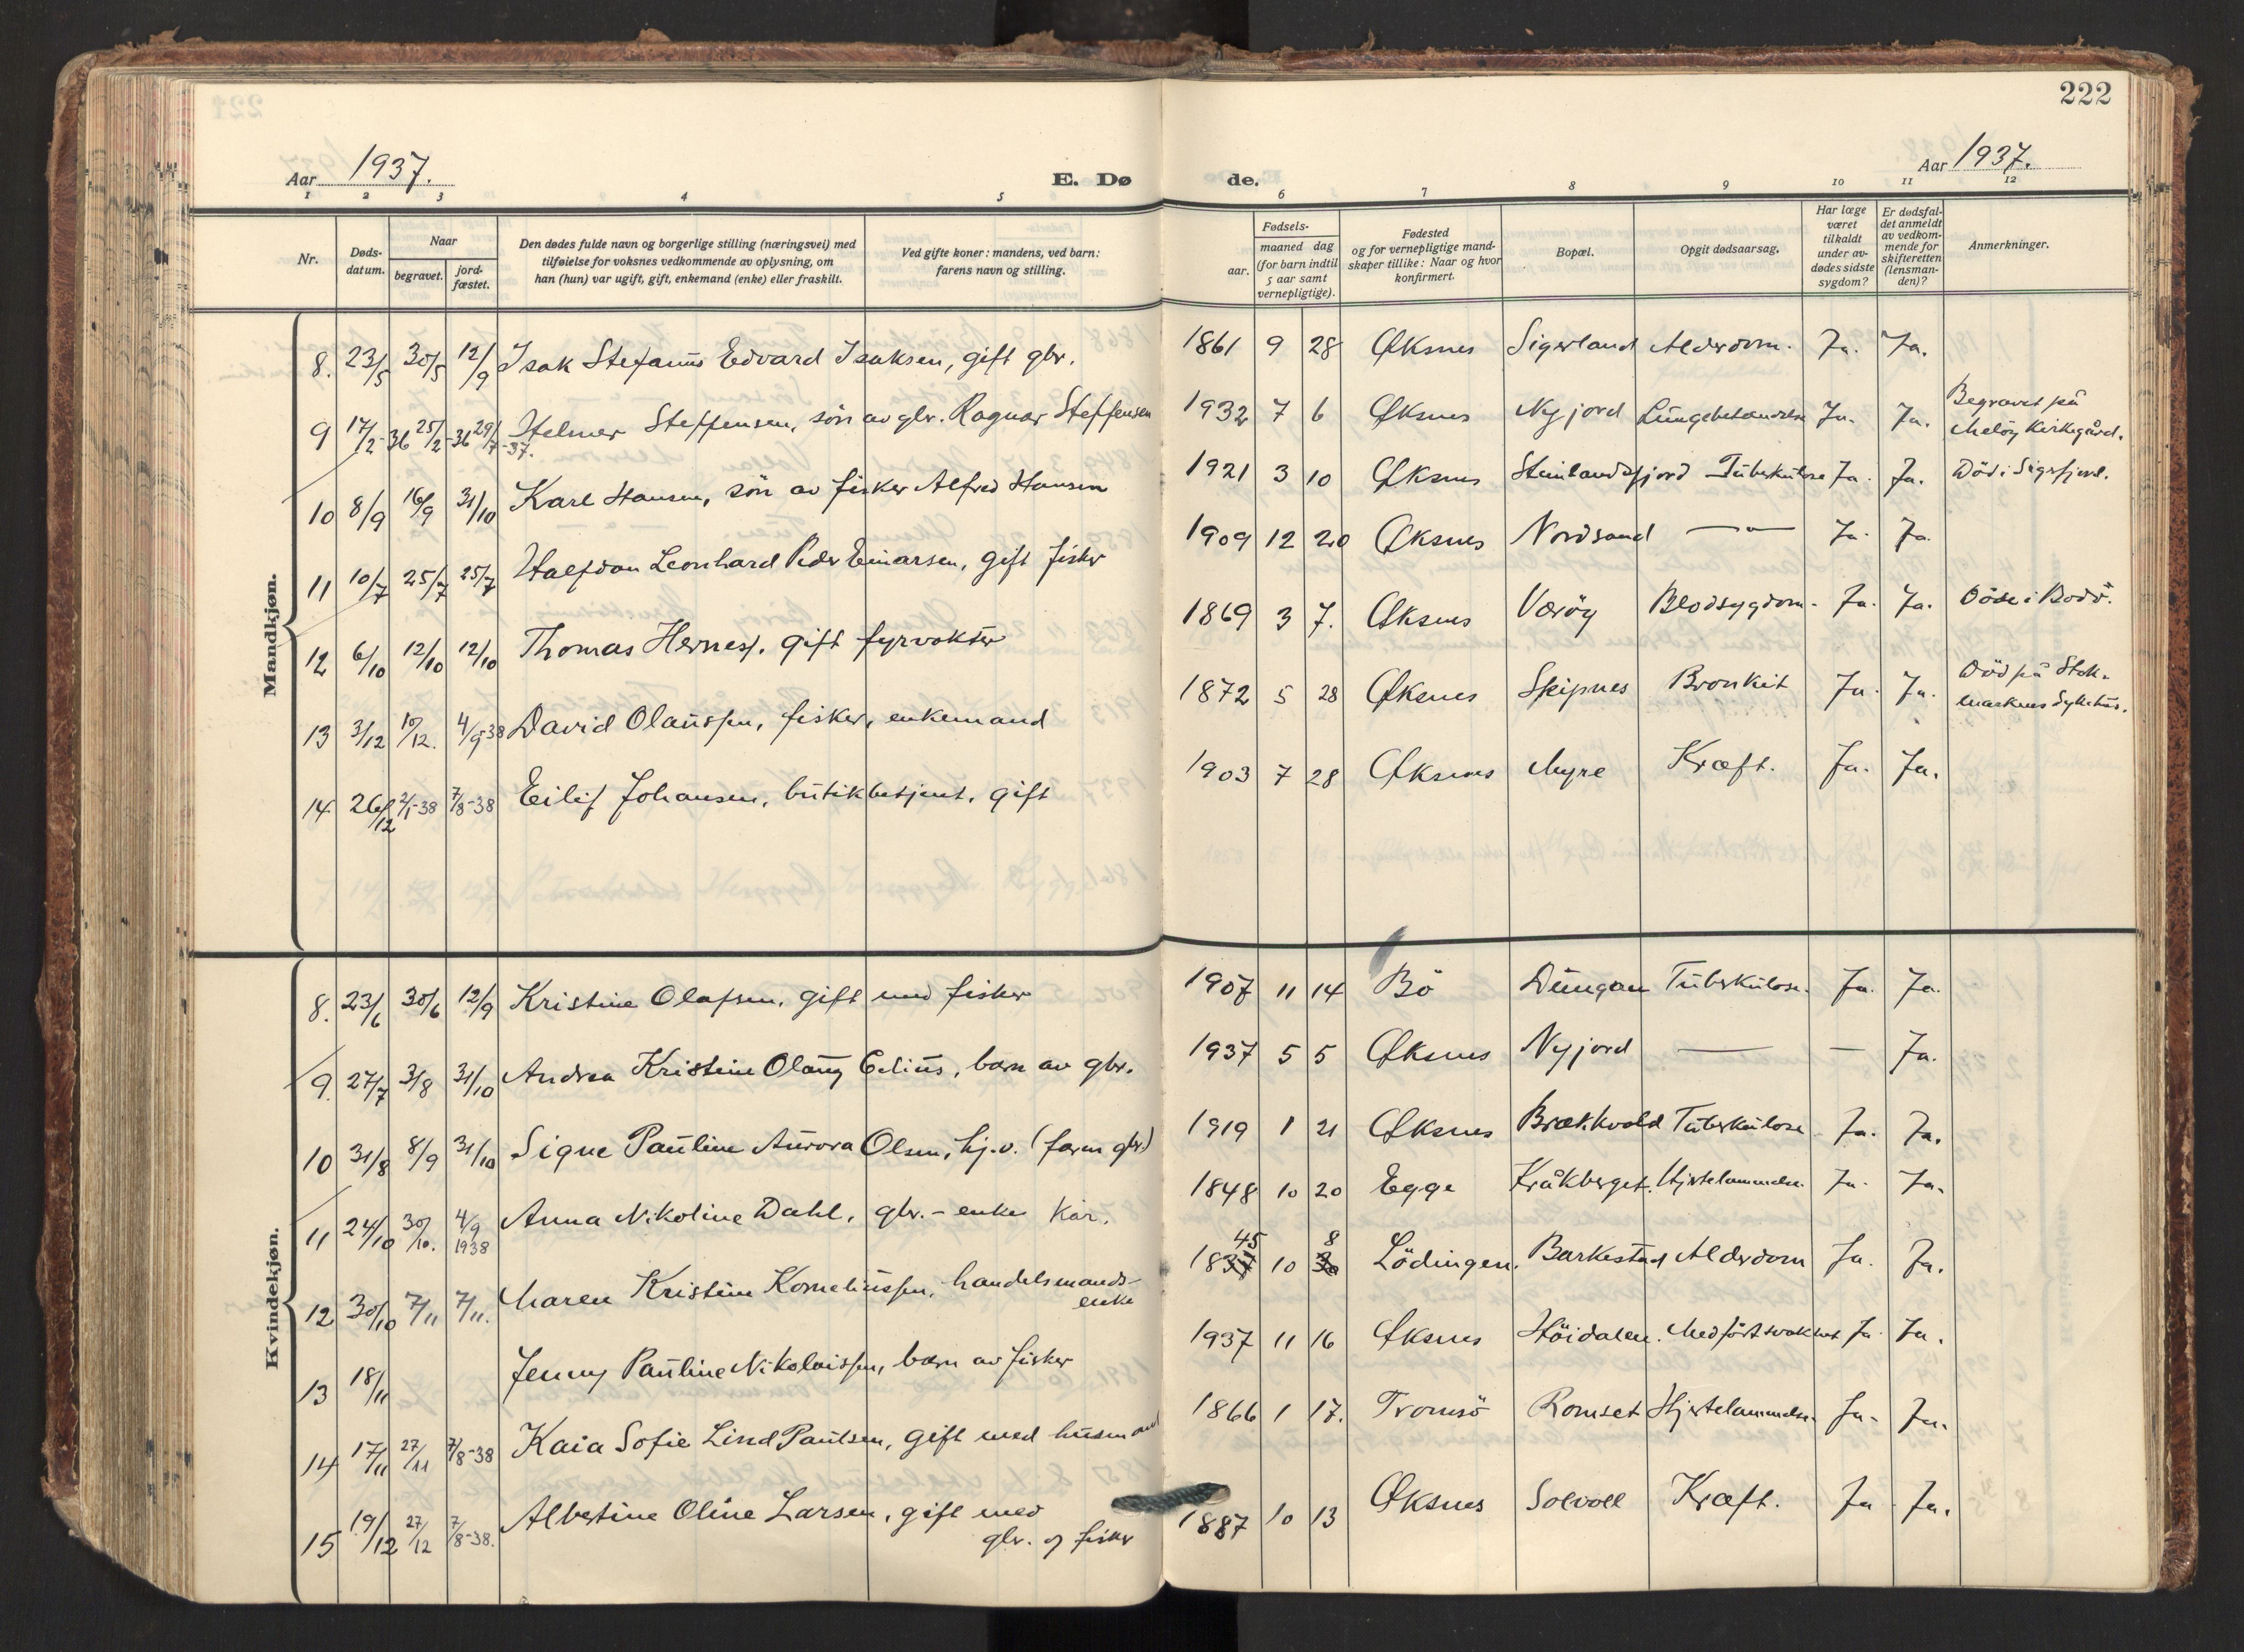 222
Aar 1937. E. Dø
de. Aar 1937.
1 2 3 4 5 6 7 8 9 10 11 12
Nr. Døds-datum. Naar begravet. jord-fæstet. Den dødes fulde navn og borgerlige stilling (næringsvei) med tilføielse for voksnes vedkommende av oplysning, om han (hun) var ugift, gift, enkemand (enke) eller fraskilt. Ved gifte koner: mandens, ved barn: farens navn og stilling.
Fødsels- aar. maaned dag (for barn indtil 5 aar samt vernepligtige). Fødested og for vernepligtige mandskaper tillike: Naar og hvor konfirmert. Bopæl. Opgit dødsaarsag. Har læge været tilkaldt under av-dødes sidste sygdom? Er dødsfal-det anmeldt av vedkom-mende for skifteretten (lensman-den)? Anmerkninger.
Mandkjøn.
8. 23/5 30/5 12/9 Isak Stefanus Edvard Isaksen, gift gbr. 1861 9 28 Øksnes Sigerland Alderdom. Ja. Ja.
9 17/2-36 25/2-36 29/7-37. Helmer Steffensen, sön av gbr. Ragnar Steffensen 1932 7 6 Øksnes Nyjord Ja. Ja. Begravet på Meløy Kirkegård.
10 8/9 16/9 31/10 Karl Hansen, sön av fisker Alfred Hansen 1921 3 10 Øksnes Steinlandsfjord Tuberkulose Ja. Ja. Död i Sigerfjord.
11 10/7 25/7 25/7 Halfdan Leonhard Peder Einarsen, gift fisker 1909 12 20 Øksnes Nordsand —"— Ja. Ja.
12 6/10 12/10 12/10 Thomas Hernes, gift fyrvokter 1869 3 7. Øksnes Værøy Blodsygdom. Ja. Ja. Döde i Bodö.
13 3/12 10/12. 4/9-38 David Olaussen, fisker, enkemand 1872 5 28 Øksnes Skipnes Bronkit Ja. Ja. Död på Stokmarknes Sykehus.
14 26/12 2/1-38 7/8-38 Eilif Johansen, butikbetjent, gift 1903 7 28 Øksnes Myre Kræft. Ja. Ja.
Kvindekjøn.
8. 23/6 30/6 12/9 Kristine Olafsen, gift med fisker 1907 11 14 Bö Dungan Tuberkulose. Ja. Ja.
9. 27/7 3/8 31/10 Andrea Kristine Olaug Edius, barn av gbr. 1937 5 5 Øksnes Nyjord — — Ja.
10 31/8 8/9 31/10 Signe Pauline Aurora Olsen, hj.v. (faren gbr) 1919 1 21 Øksnes Brækkvold Tuberkulose Ja. Ja.
11 24/10 30/10. 4/9 1938 Anna Nikoline Dahl, gbr.-enke Kår. 1848 10 20 Egge Kråkberget. Hjertelammelse. Ja. Ja.
12 30/10 7/11 7/11. Maren Kristine Korneliussen, handelsmands-enke 1837 45 10 30 8 Lödingen. Barkestad Alderdom Ja. Ja.
13 18/11 Jenny Pauline Nikolaissen, barn av fisker 1937 11 16 Øksnes Höidalen. Medfödt svakhet Ja. Ja.
14 17/11 27/11 7/8-38 Kaia Sofie Lind Paulsen, gift med husmand 1866 1 17. Tromsö Romset Hjertelammelse. Ja. Ja.
15 19/12 27/12 7/8-38. Albertine Oline Larsen, gift med gbr. og fisker 1887 10 13 Øksnes Solvoll Kræft. Ja Ja.